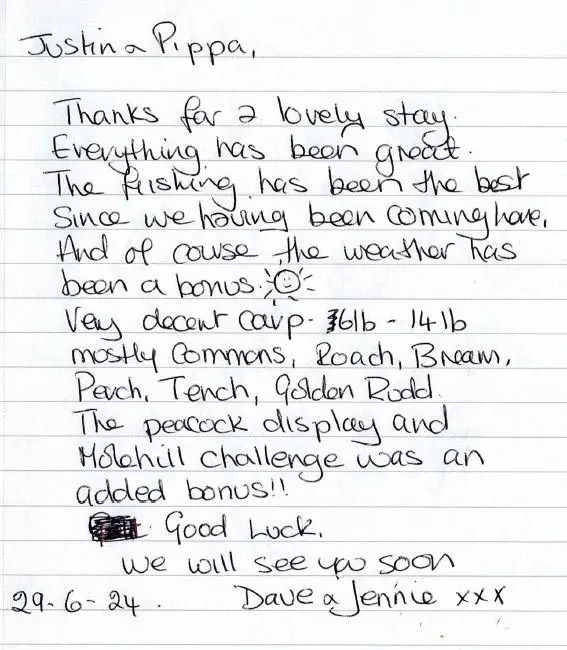 Justin & Pippa,
Thanks for a lovely stay.
Everything has been great.
The fiishing has been the best
Since we having been coming here,
And of couse the weather has
been a bonus.
Very decent carp - 6lb - 14lb
mostly Commons, Roach, Bream,
Perch, Tench, Golden Rudd.
The peacock display and
Molehill challenge was an
added bonus!!
Good Luck.
we will see you soon
29-6-24. Dave & Jennie xxx